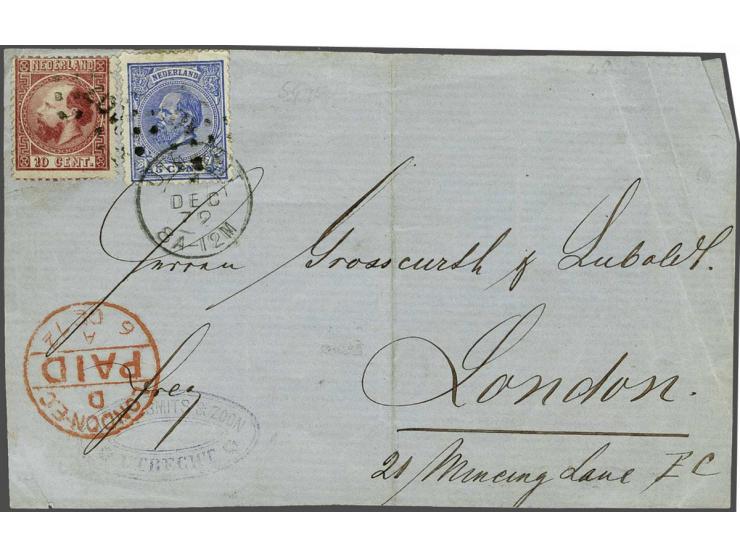 NEDERLAND
10 CENT.
NEDERLAND
5 CENT
DEC
79
8A-12M
Herren Grosscurth & Luboldt.
London.
21 Mincing Lane E C
frey
LONDON-E.C
D
PAID
A
6 DE 72
SMITS & ZOON
UTRECHT